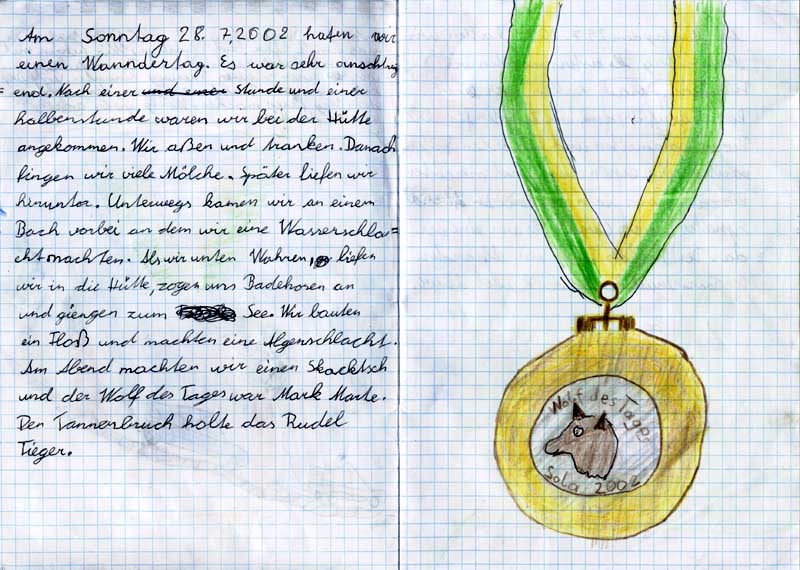 Am Sonntag 28. 7,2002 hatten wir
einen Wanndertag. Es war sehr anschtreng
end. Nach einer und einer Stunde und einer
halbenstunde waren wir bei der Hütte
angekommen. Wir aßen und tranken. Danach
fingen wir viele Mölche. Später liefen wir
hinunter. Unterwegs kamen wir an einem
Bach vorbei an dem wir eine Wasserschla=
chtmachten. Als wir unten Wahren, liefen
wir in die Hütte, zogen uns Badehosen an
und giengen zum See. Wir bauten
ein Floß und machten eine Algenschlacht.
Am Abend machten wir einen Skacktsch
und der Wolf des Tages war Mark Marte.
Den Tannenbruch holte das Rudel
Tieger.
Wolf des Tages
Sola 2002